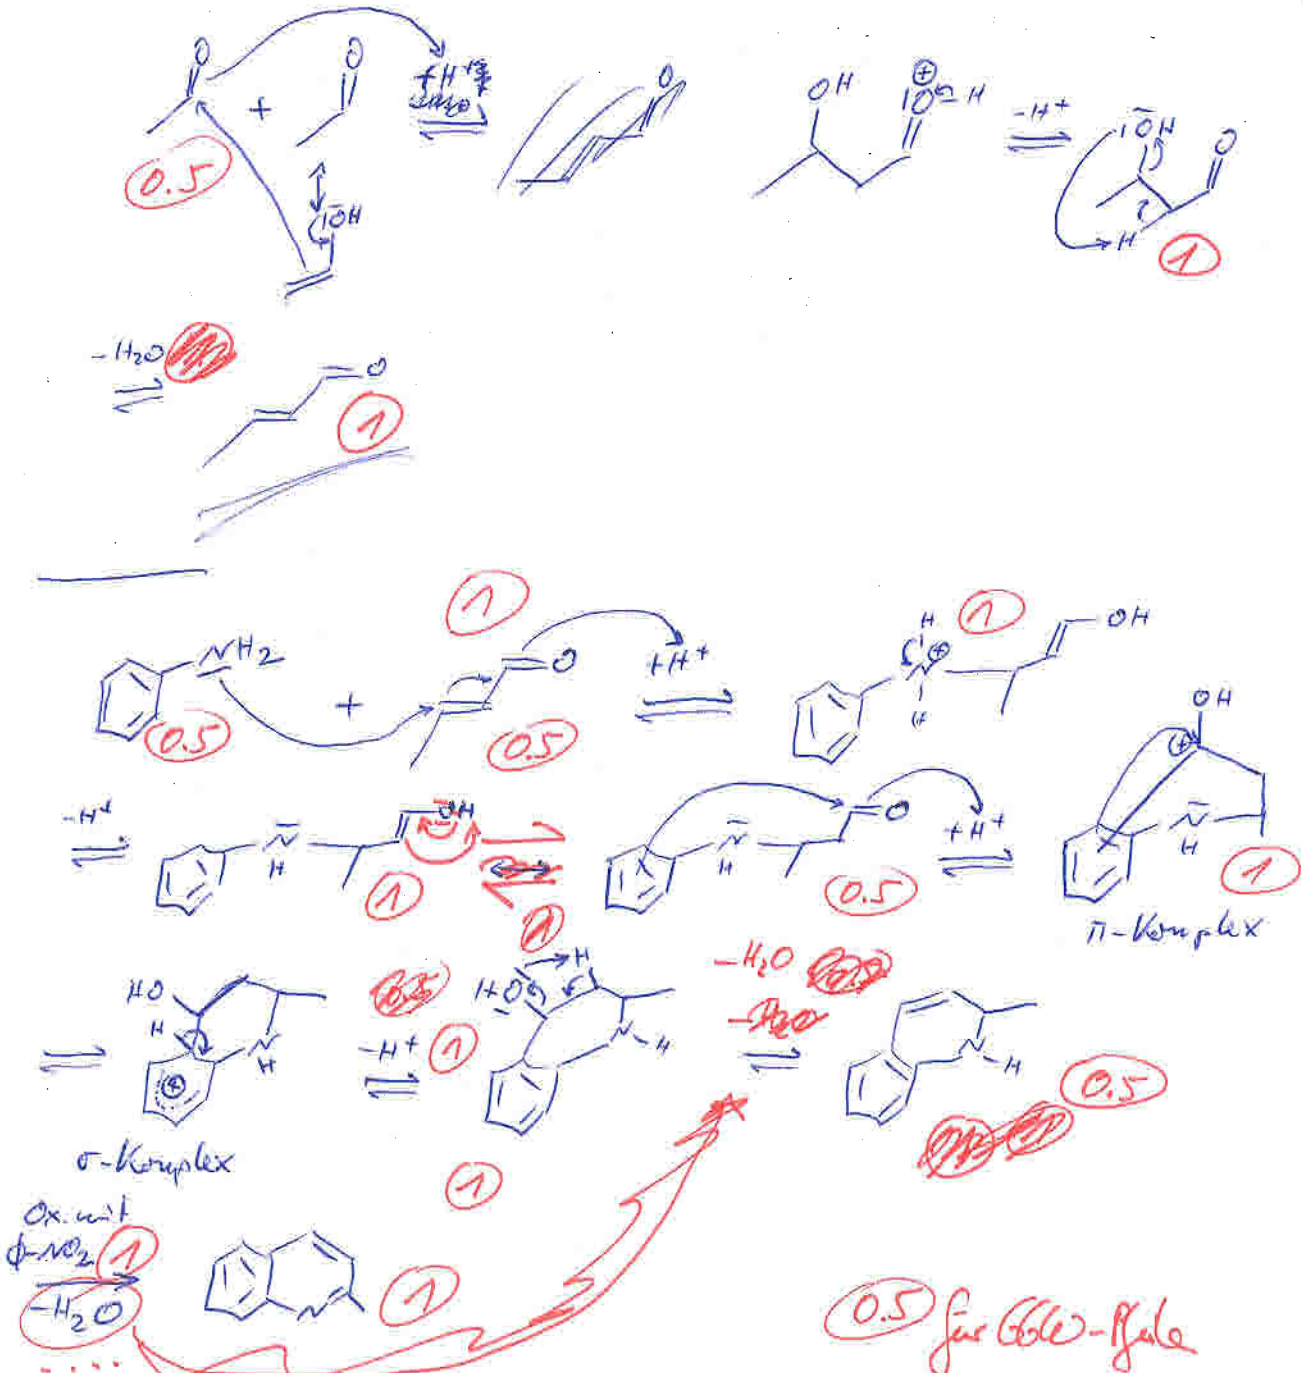 O O +H+ O OH ⊕ |O–H -H+ |OH O
+
0.5 |OH H 1
-H2O
O
1
1
NH2 O +H+ H 1 OH
+ N ⊕
0.5 0.5 H
OH
-H+ N OH N O +H+ N
H H H
1 0.5 1
π-Komplex
1
HO 0.5 HO H -H2O
H N -H+ 1 N-H N-H
H 0.5
⊕
σ-Komplex
1
Ox. mit
ϕ-NO2 1
-H2O N 1
0.5 für GGW-Pfeile